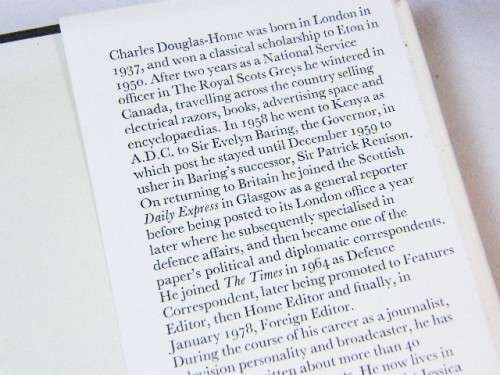 Charles Douglas-Home was born in London in
1937, and won a classical scholarship to Eton in
1950. After two years as a National Service
officer in The Royal Scots Greys he wintered in
Canada, travelling across the country selling
electrical razors, books, advertising space and
encyclopaedias. In 1958 he went to Kenya as
A.D.C. to Sir Evelyn Baring, the Governor, in
which post he stayed until December 1959 to
usher in Baring's successor, Sir Patrick Renison.
On returning to Britain he joined the Scottish
Daily Express in Glasgow as a general reporter
before being posted to its London office a year
later where he subsequently specialised in
defence affairs, and then became one of the
paper's political and diplomatic correspondents.
He joined The Times in 1964 as Defence
Correspondent, later being promoted to Features
Editor, then Home Editor and finally, in
January 1978, Foreign Editor.
During the course of his career as a journalist,
personality and broadcaster, he has
about more than 40
He now lives in
Jessica